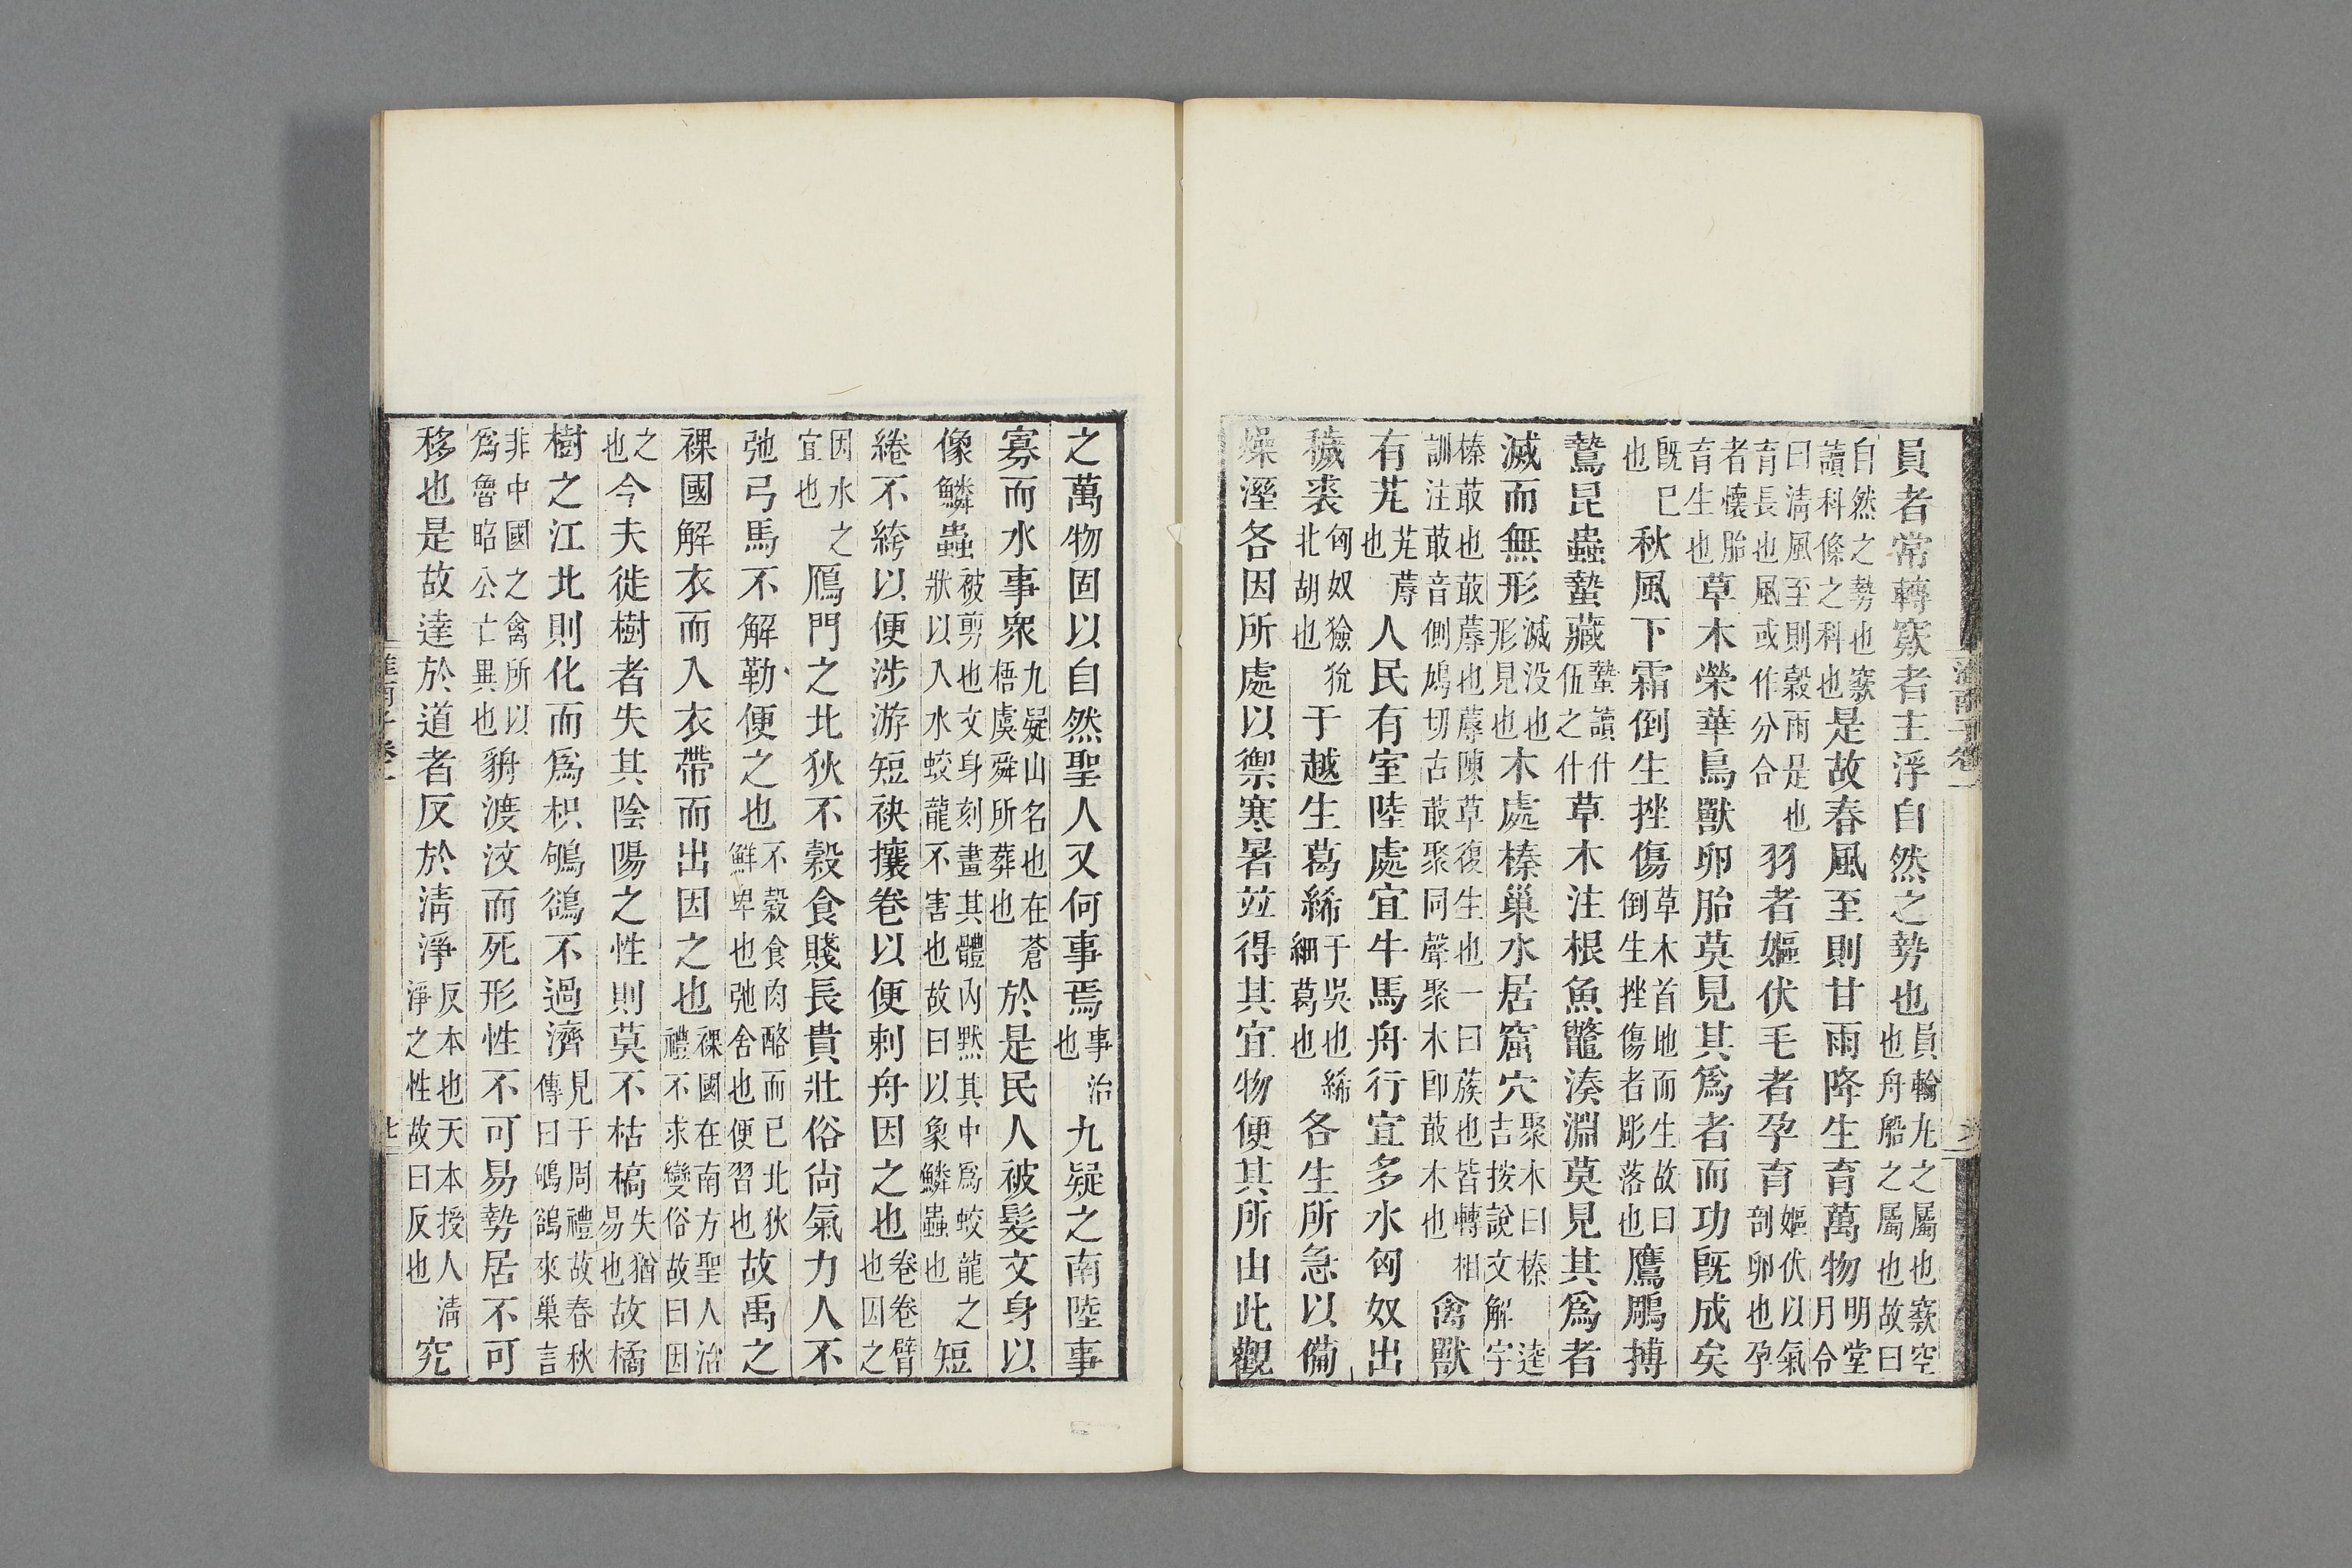 員者常轉窾者主浮自然之勢也員輪丸之屬也窾空也舟船之屬也故曰
自然之勢也窾讀科條之科也是故春風至則甘雨降生育萬物明堂月令
曰清風至則穀雨是也育長也風或作分合羽者嫗伏毛者孕育嫗伏以氣剖卵也孕
者懷胎育生也草木榮華鳥獸卵胎莫見其爲者而功旣成矣
旣已也秋風下霜倒生挫傷草木首地而生故曰倒生挫傷者彫落也鷹鵰搏
鷙昆蟲蟄藏蟄讀什伍之什草木注根魚鼈湊淵莫見其爲者
滅而無形滅没也形見也木處榛巢水居窟穴聚木曰榛逵吉按說文解字
榛菆也菆蓐也蓐陳草復生也一曰蔟也皆轉相訓注菆音側鳩切古菆聚同聲聚木卽菆木也禽獸
有艽艽蓐也人民有室陸處宜牛馬舟行宜多水匈奴出
穢裘匈奴獫狁北胡也于越生葛絺于吳也絺細葛也各生所急以備
燥溼各因所處以禦寒暑竝得其宜物便其所由此觀
淮南子卷一
之萬物固以自然聖人又何事焉事治也九疑之南陸事
寡而水事衆九疑山名也在蒼梧虞舜所葬也於是民人被髮文身以
像鱗蟲被剪也文身刻畫其體內黥其中爲蛟龍之狀以入水蛟龍不害也故曰以象鱗蟲也短
綣不絝以便涉游短袂攘卷以便刺舟因之也卷卷臂也因之
因水之宜也鴈門之北狄不穀食賤長貴壯俗尙氣力人不
弛弓馬不解勒便之也不穀食肉酪而已北狄鮮卑也弛舍也便習也故禹之
裸國解衣而入衣帶而出因之也裸國在南方聖人治禮不求變俗故曰因
之也今夫徙樹者失其陰陽之性則莫不枯槁失猶易也故橘
樹之江北則化而爲枳鴝鵒不過濟見于周禮故春秋傳曰鴝鵒來巢言
非中國之禽所以爲魯昭公亡異也貈渡汶而死形性不可易勢居不可
移也是故達於道者反於清淨反本也天本授人清淨之性故曰反也究